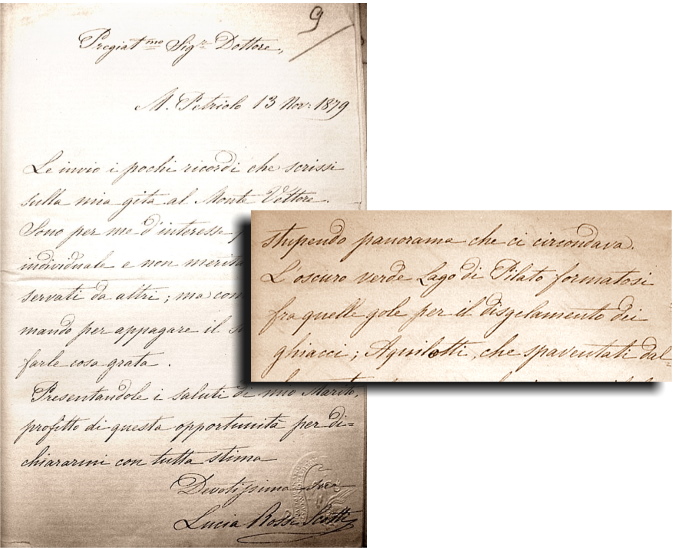 9
Pregiat.mo Sig.r Dottore,
M. Petriolo 13 Nov.e 1879
Le invio i pochi ricordi che scrissi
sulla mia gita al Monte Vettore.
Sono per me d'interesse
individuale e non merita
servati da altri; ma con
mando per appagare il
farle cosa grata.
Presentandole i saluti di mio Marito,
profitto di questa opportunità per di=
chiararmi con tutta stima
Devotissima Sua
Lucia Rossi Scotti
stupendo panorama che ci circondava.
L'oscuro verde Lago di Pilato formatosi
fra quelle gole per il disgelamento dei
ghiacci; Aquilotti, che spaventati dal=